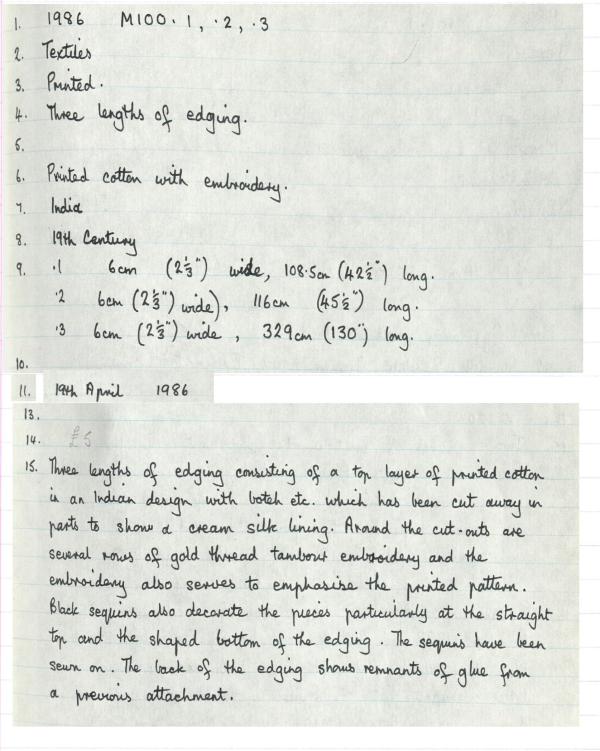 1. 1986 M100.1, .2, .3
2. Textiles
3. Printed.
4. Three lengths of edging.
5.
6. Printed cotton with embroidery.
7. India
8. 19th Century
9. .1 6cm (2⅓") wide, 108.5cm (42½") long.
.2 6cm (2⅓") wide), 116cm (45½") long.
.3 6cm (2⅓") wide, 329cm (130") long.
10.
11. 19th April 1986
13.
14. £5
15. Three lengths of edging consisting of a top layer of printed cotton
in an Indian design with boteh etc. which has been cut away in
parts to show a cream silk lining. Around the cut-outs are
several rows of gold thread tambour embroidery and the
embroidery also serves to emphasise the printed pattern.
Black sequins also decorate the pieces particularly at the straight
top and the shaped bottom of the edging. The sequins have been
sewn on. The back of the edging shows remnants of glue from
a previous attachment.